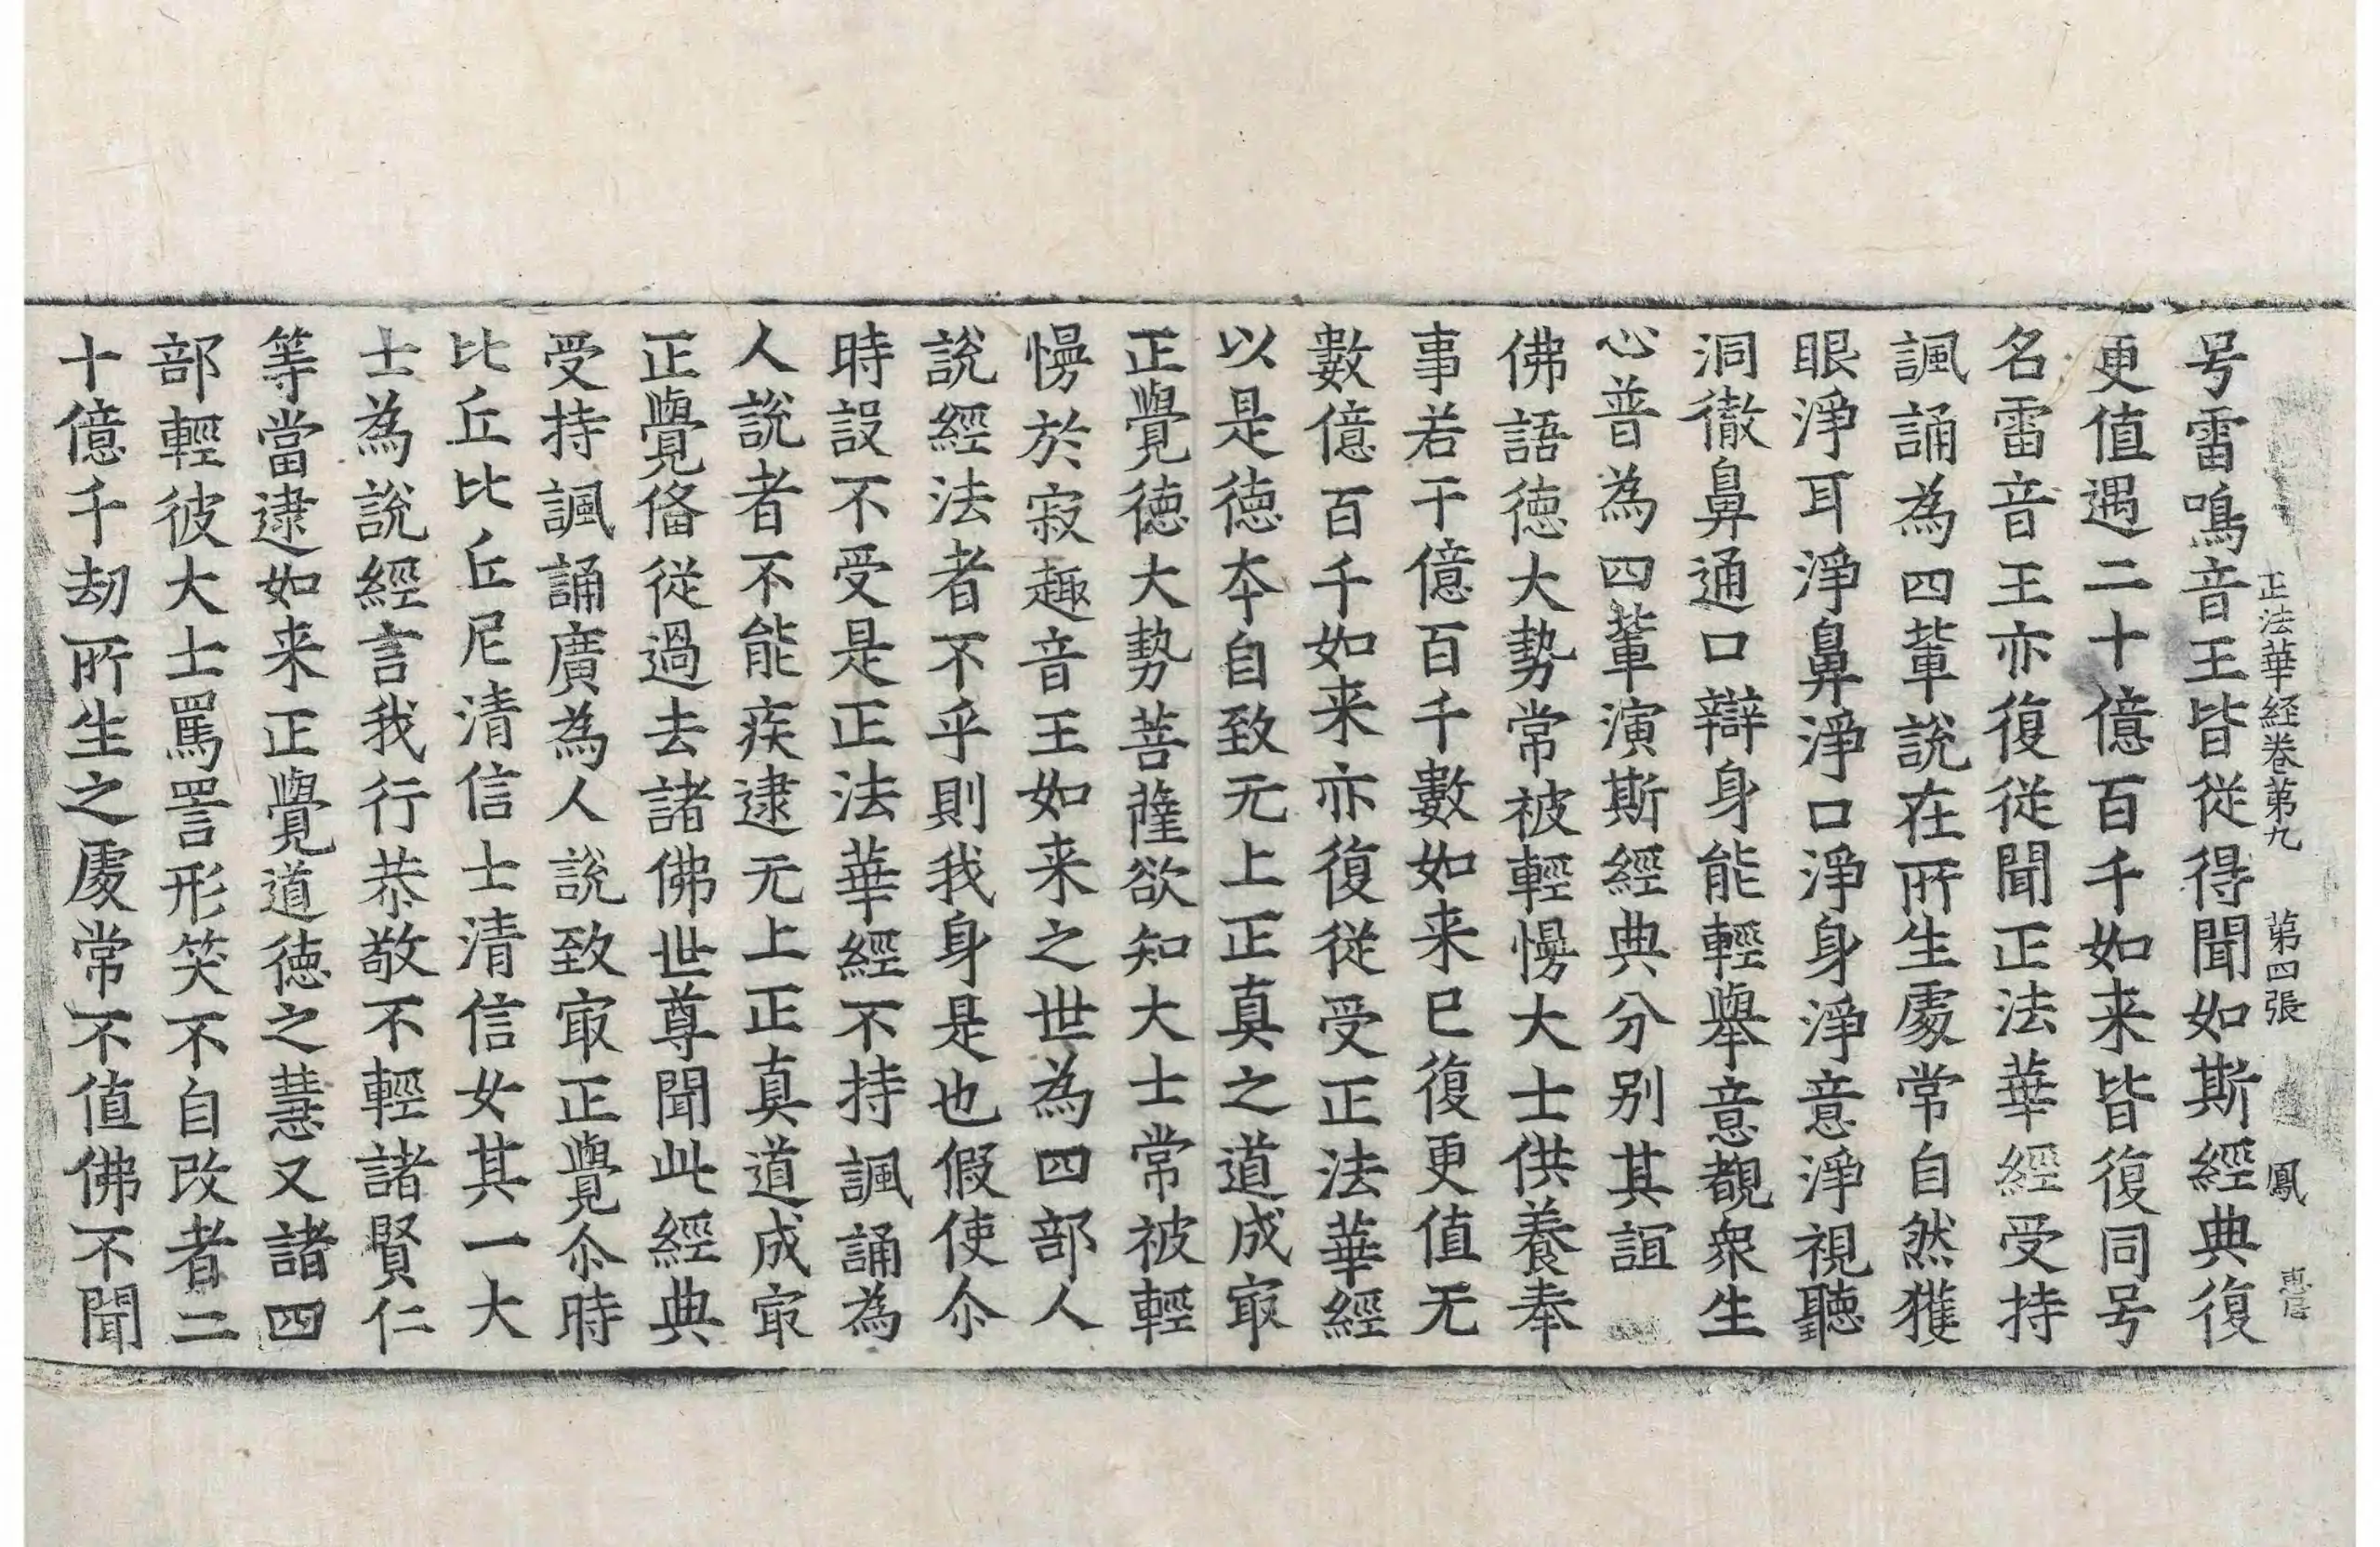 正法華経卷第九 第四張 鳳
号雷鳴音王皆従得聞如斯經典復
更值遇二十億百千如来皆復同号
名雷音王亦復従聞正法華經受持
諷誦為四輩說在所生處常自然獲
眼淨耳淨鼻淨口淨身淨意淨視聽
洞徹鼻通口辯身能輕舉意覩衆生
心普為四輩演斯經典分别其誼
佛語徳大勢常被輕慢大士供養奉
事若干億百千數如来已復更值无
數億百千如来亦復従受正法華經
以是徳夲自致无上正真之道成㝡
正覺徳大勢菩薩欲知大士常被輕
慢於寂趣音王如来之世為四部人
說經法者不乎則我身是也假使尒
時設不受是正法華經不持諷誦為
人說者不能疾逮无上正真道成㝡
正覺俻従過去諸佛世尊聞此經典
受持諷誦廣為人說致㝡正覺尒時
比丘比丘尼清信士清信女其一大
士為說經言我行恭敬不輕諸賢仁
等當逮如来正覺道徳之慧又諸四
部輕彼大士罵詈形笑不自改者二
十億千劫所生之處常不值佛不聞